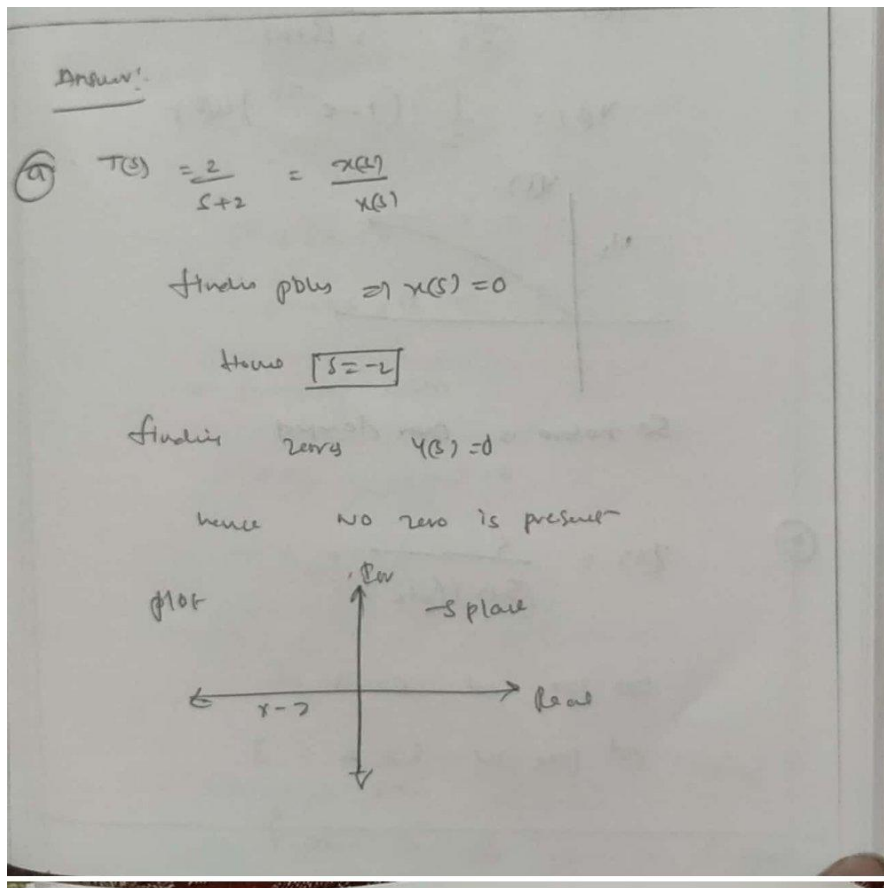 Answer:
(a) T(s) = 2/(s+2) = x(s)/x(s)
poles => x(s) = 0
s = -2
finding zeros y(s) = 0
hence NO zero is present
plot
s plane
x-2
Real